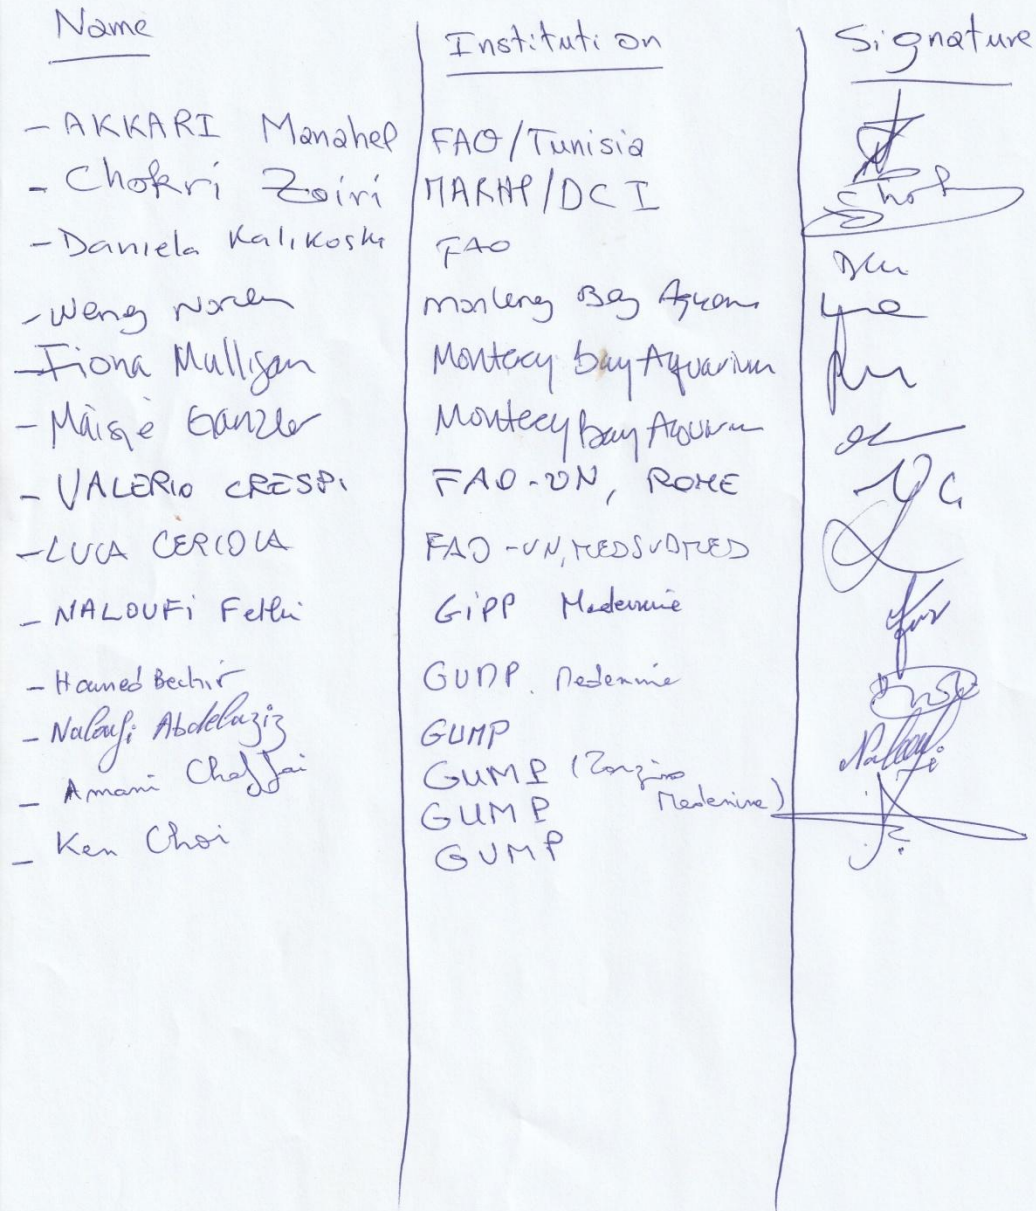 Name Institution Signature
- AKKARI Manahel FAO/Tunisia
- Chokri Zoiri MARHP/DCI
- Daniela Kalikoski FAO
- Weng
- Fiona Mulligan Monterey bay Aquarium
- Maisie Ganzler Monterey Bay Aquarium
- VALERIO CRESPI FAO-UN, ROME
- LUCA CERIOLA FAO-UN, MEDSUDMED
- NALOUFi Fethi GIPP Medenine
- Hamed Bechir GUMP. Medenine
- Naloufi Abdelaziz GUMP
- Amani Chaffai GUMP (Medenine)
GUMP
- Ken Choi GUMP